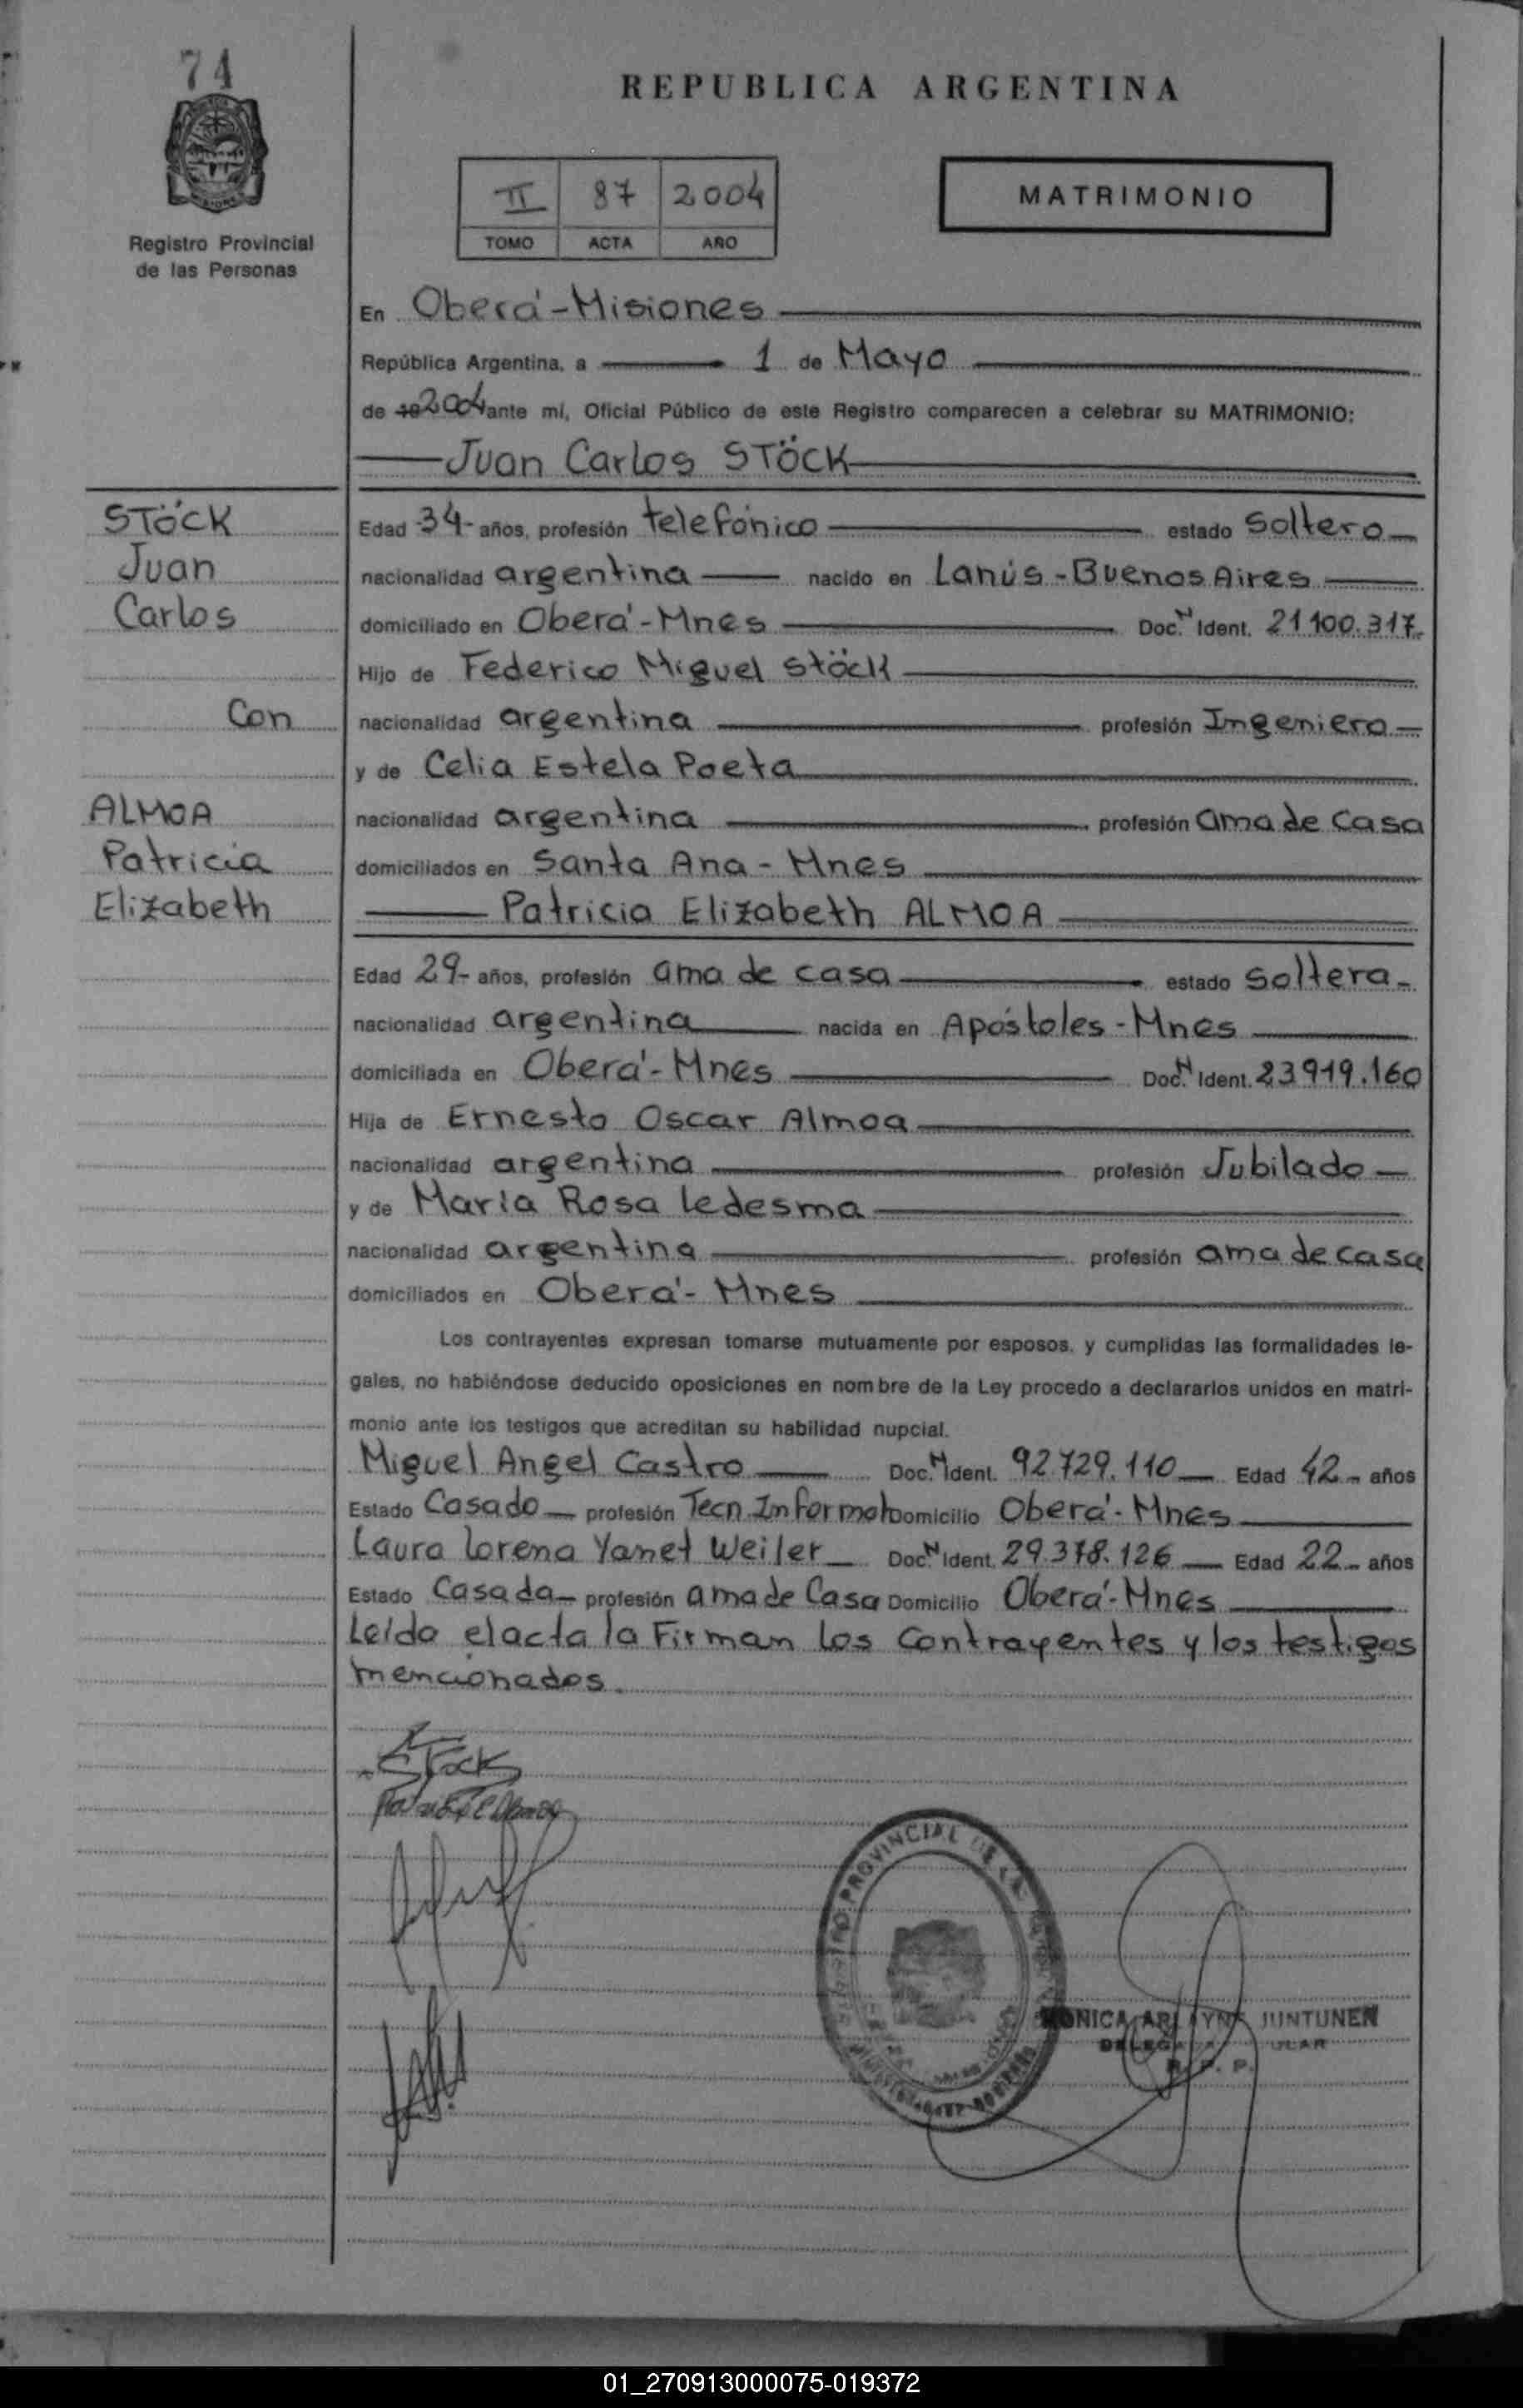 74
REPUBLICA ARGENTINA
II 87 2004
TOMO ACTA AÑO
MATRIMONIO
Registro Provincial
de las Personas
En Oberá-Misiones
República Argentina, a 1 de Mayo
de 19 2004 ante mí, Oficial Público de este Registro comparecen a celebrar su MATRIMONIO:
Juan Carlos STÖCK
STÖCK
Juan
Carlos
Con
ALMOA
Patricia
Elizabeth
Edad -34- años, profesión telefónico estado Soltero
nacionalidad argentina nacido en Lanús-Buenos Aires
domiciliado en Oberá-Mnes Doc. N Ident. 21 100.317.
Hijo de Federico Miguel Stöck
nacionalidad argentina profesión Ingeniero
y de Celia Estela Poeta
nacionalidad argentina profesión ama de Casa
domiciliados en Santa Ana - Mnes
Patricia Elizabeth ALMOA
Edad 29- años, profesión ama de casa estado Soltera-
nacionalidad argentina nacida en Apóstoles-Mnes
domiciliada en Oberá-Mnes Doc. N Ident. 23919.160
Hija de Ernesto Oscar Almoa
nacionalidad argentina profesión Jubilado
y de María Rosa Ledesma
nacionalidad argentina profesión ama de casa
domiciliados en Oberá- Mnes
Los contrayentes expresan tomarse mutuamente por esposos, y cumplidas las formalidades le-
gales, no habiéndose deducido oposiciones en nombre de la Ley procedo a declararlos unidos en matri-
monio ante los testigos que acreditan su habilidad nupcial.
Miguel Angel Castro Doc. N Ident. 92.729.110 Edad 42- años
Estado Casado profesión Tecn. Informat Domicilio Oberá-Mnes
Laura Lorena Yanet Weiler Doc. N Ident. 29.378.126 Edad 22- años
Estado Casada profesión ama de Casa Domicilio Oberá-Mnes
Leída el acta la Firman los Contrayentes y los testigos
mencionados.
Stock
PROVINCIAL DE LAS
MONICA ARLAYNE JUNTUNEN
R. P. P.
01_270913000075-019372